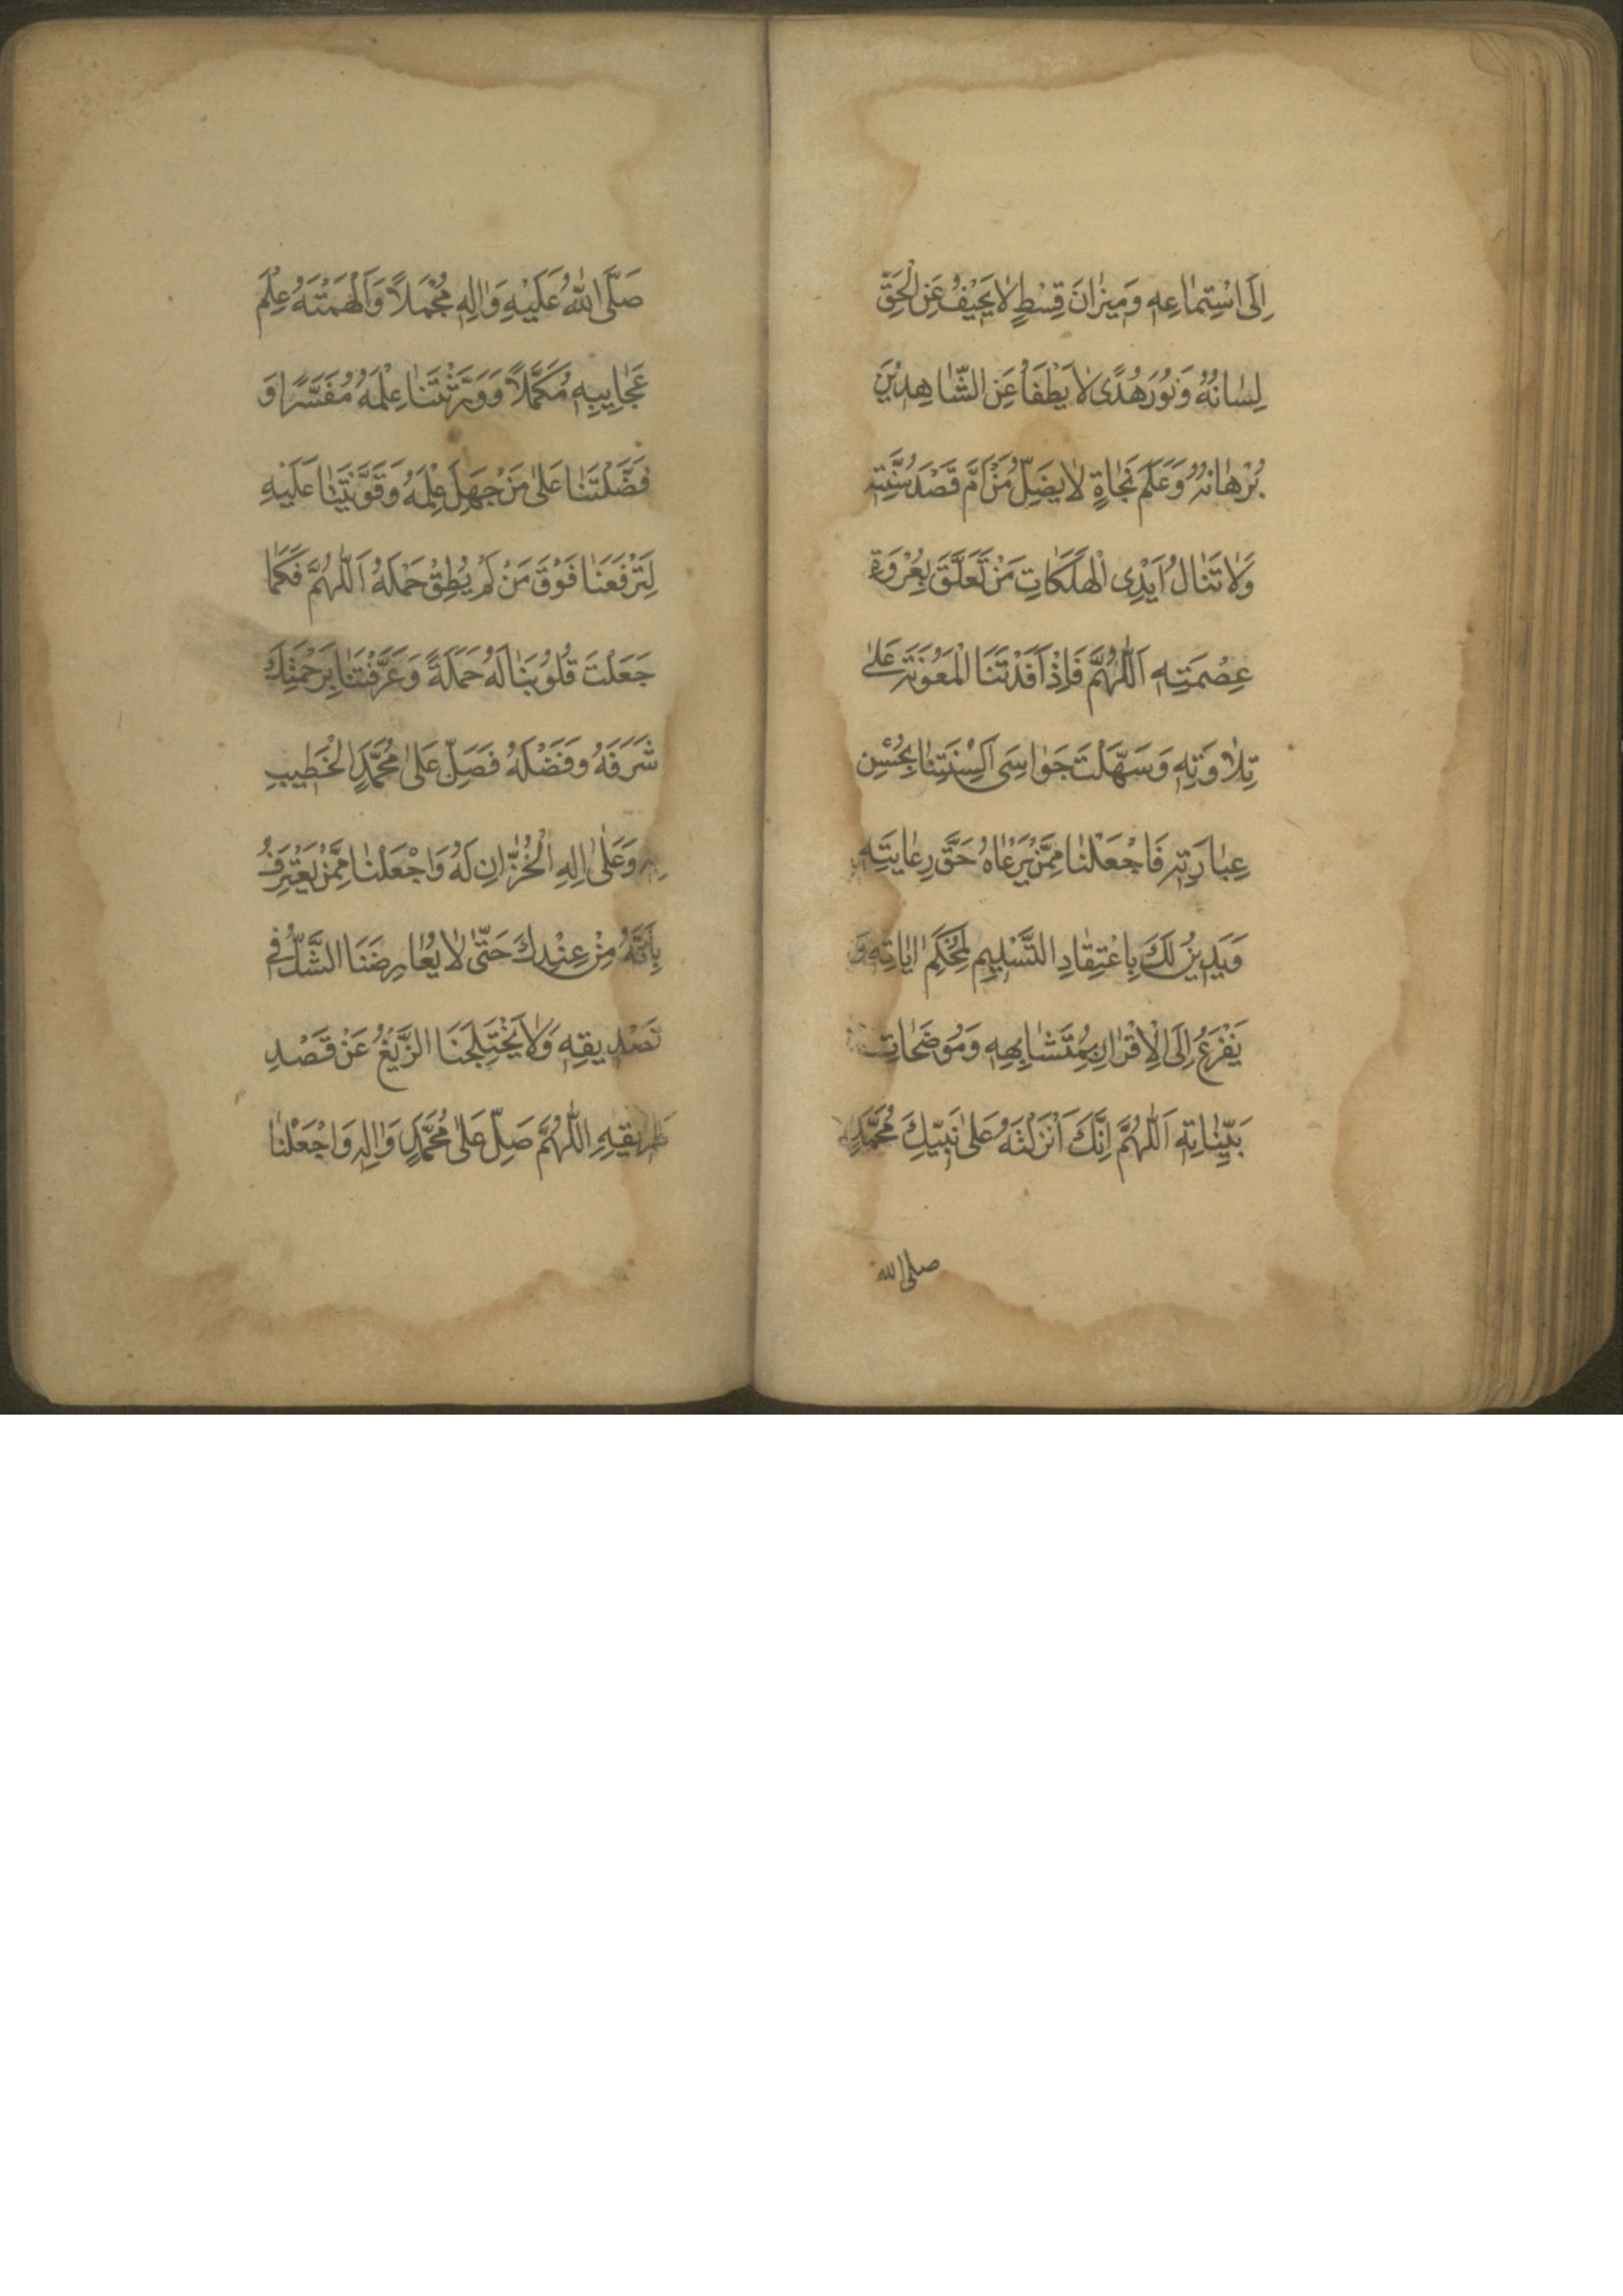 اِلَى اسْتِمٰاعِهِ وَمِيزٰانَ قِسْطٍ لٰا يَحِيْفُ عَنِ الْحَقِّ
لِسٰانُهُ وَنُوْرَ هُدًى لٰا يَطْفَأُ عَنِ الشّٰاهِدِيْنَ
بُرْهٰانُهُ وَعَلَمَ نَجٰاةٍ لٰا يَضِلُّ مَنْ اَمَّ قَصْدَ سُنَّتِهِ
وَلٰا تَنٰالُ اَيْدِى الْهَلَكَاتِ مَنْ تَعَلَّقَ بِعُرْوَةِ
عِصْمَتِهِ اَللّٰهُمَّ فَاِذْ اَفَدْتَنَا الْمَعُوْنَةَ عَلٰى
تِلٰاوَتِهِ وَسَهَّلْتَ جَوٰاسِىَ اَلْسِنَتِنٰا بِحُسْنِ
عِبٰارَتِهِ فَاجْعَلْنٰا مِمَّنْ يَرْعٰاهُ حَقَّ رِعٰايَتِهِ
وَيَدِيْنُ لَكَ بِاعْتِقٰادِ التَّسْلِيمِ لِمُحْكَمِ اٰيٰاتِهِ وَ
يَفْزَعُ اِلَى الْاِقْرٰارِ بِمُتَشٰابِهِهِ وَمُوْضَحٰاتِ
بَيِّنٰاتِهِ اَللّٰهُمَّ اِنَّكَ اَنْزَلْتَهُ عَلٰى نَبِيِّكَ مُحَمَّدٍ
صلى الله
صَلَّى اللّٰهُ عَلَيْهِ وَاٰلِهِ مُجْمَلًا وَاَلْهَمْتَهُ عِلْمَ
عَجٰايِبِهِ مُكَمَّلًا وَوَرَّثْتَنٰا عِلْمَهُ مُفَسَّرًا وَ
فَضَّلْتَنٰا عَلٰى مَنْ جَهِلَ عِلْمَهُ وَقَوَّيْتَنٰا عَلَيْهِ
لِتَرْفَعَنٰا فَوْقَ مَنْ لَمْ يُطِقْ حَمْلَهُ اَللّٰهُمَّ فَكَمٰا
جَعَلْتَ قُلُوْبَنٰا لَهُ حَمَلَةً وَعَرَّفْتَنٰا بِرَحْمَتِكَ
شَرَفَهُ وَفَضْلَهُ فَصَلِّ عَلٰى مُحَمَّدٍ الْخَطِيبِ
بِهِ وَعَلٰى اٰلِهِ الْخُزّٰانِ لَهُ وَاجْعَلْنٰا مِمَّنْ يَعْتَرِفُ
بِاَنَّهُ مِنْ عِنْدِكَ حَتّٰى لٰا يُعٰارِضَنَا الشَّكُّ فِى
تَصْدِيقِهِ وَلٰا يَخْتَلِجَنَا الزَّيْغُ عَنْ قَصْدِ
طَرِيقِهِ اَللّٰهُمَّ صَلِّ عَلٰى مُحَمَّدٍ وَاٰلِهِ وَاجْعَلْنٰا